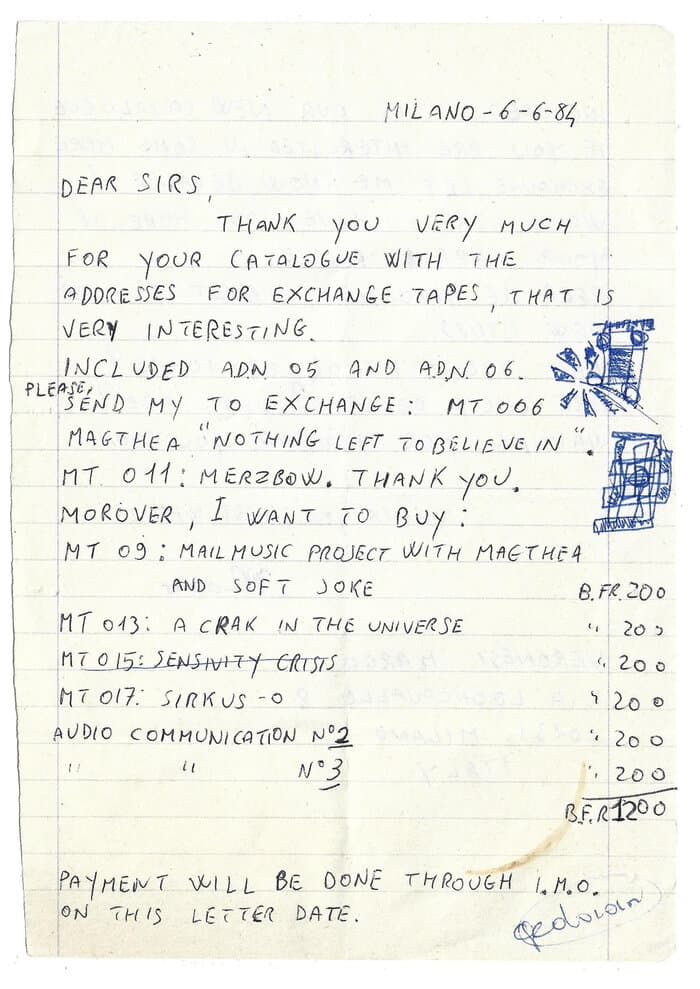 MILANO - 6-6-84
DEAR SIRS,
THANK YOU VERY MUCH
FOR YOUR CATALOGUE WITH THE
ADDRESSES FOR EXCHANGE TAPES, THAT IS
VERY INTERESTING.
INCLUDED A.D.N. 05 AND A.D.N. 06.
PLEASE,
SEND MY TO EXCHANGE: MT 006
MAGTHEA "NOTHING LEFT TO BELIEVE IN".
MT. 011: MERZBOW. THANK YOU.
MOROVER, I WANT TO BUY:
MT 09: MAIL MUSIC PROJECT WITH MAGTHEA
AND SOFT JOKE B.FR. 200
MT 013: A CRAK IN THE UNIVERSE " 200
MT 015: SENSIVITY CRISIS " 200
MT 017: SIRKUS -O " 200
AUDIO COMMUNICATION N°2 " 200
" " N°3 " 200
B.F.R 1200
PAYMENT WILL BE DONE THROUGH I.M.O.
ON THIS LETTER DATE.